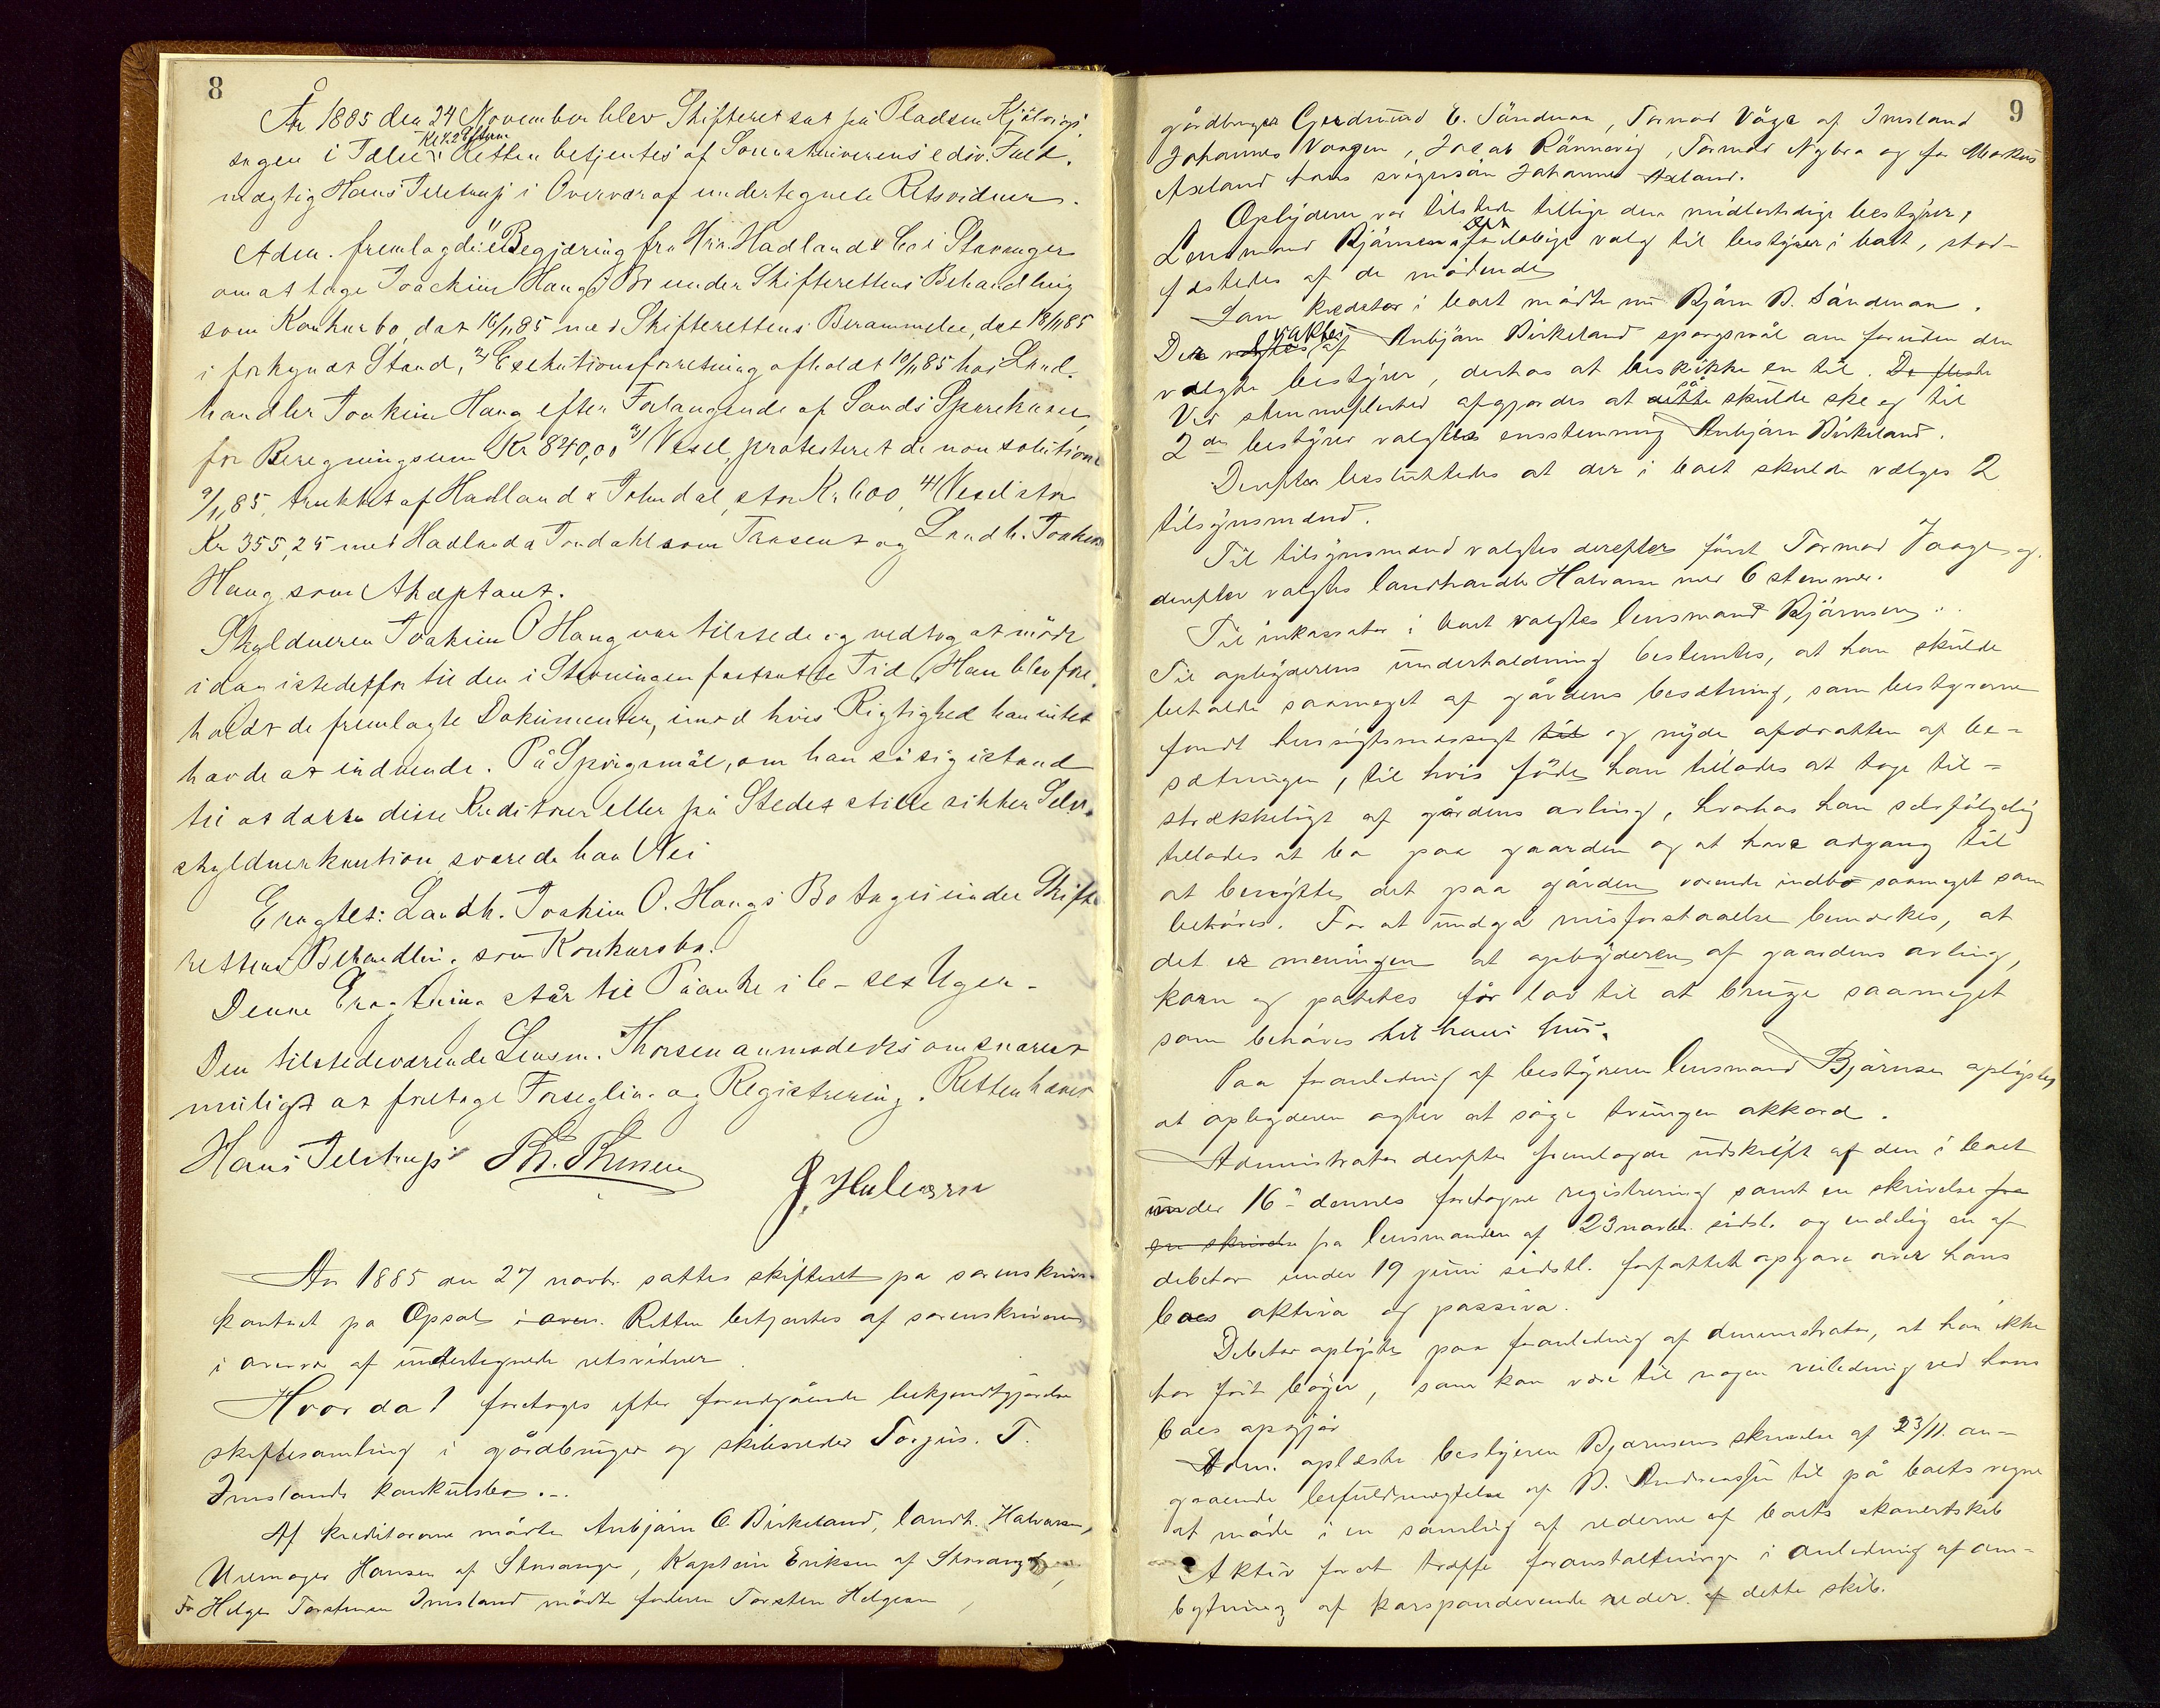 8
År 1885 den 24 November blev Skifteret sat på Pladsen Kjölvigs
Kl 4 2 Efterm
ragen i Jelse. Retten betjentes af Sorenskriverens edsv. Fuld-
mægtig Hans Telstrup i Overvær af undertegnede Retsvidner.
Adm. fremlagde: 1) Begjæring fra Hrr. Hadland & Co i Stavanger
om at tage Joachim Haugs Bo under Skifterettens Behandling
som Konkursbo, dat 16/11 85 med Skifterettens Berammelse, dat 18/11 85
i forkyndt Stand, 2) Exekutionsforretning afholdt 10/11 85 hos Land-
handler Joakim Haug efter Forlangende af Sands Sparekasse
for Beregningssum Kr 840,00 3) Vexel, protesteret de non solutione
9/11 85, trukket af Hadland & Tondal, stor Kr. 600, 4) Vexel stor
Kr 355,25 med Hadland & Tondahl som Trasent og Landh. Joakim
Haug som Akceptant.
Skyldneren Joakim O Haug var tilstede og vedtog at møde
idag istedetfor til den i Stevningen fastsatte Tid. Han blev fore-
holdt de fremlagte Dokumenter, imod hvis Rigtighed han intet
havde at indvende. På Spörgsmål, om han så sig istand
til at dække disse Kreditorer eller på Stedet stille sikker Selv-
skyldnerkaution svarede han Nei
Eragtet: Landh. Joakim O. Haugs Bo tages under Skifte-
rettens Behandling som Konkursbo.
Denne Eragtning står til Påanke i 6 - sex Uger -
Den tilstedeværende Lensm. Thorsen anmodedes om snarest
muligt at foretage Forsegling og Registrering. Retten hævet
Hans Telstrup Th. Thorsen
J. Halvorsen
Aar 1885 den 27 novbr. sattes skifteret på sorenskriver-
kontoret på Opsal i aven. Retten betjentes af sorenskriveren
i overvær af undertegnede retsvidner.
Hvor da! foretoges efter forudgående bekjendtgjørelse
skiftesamling i gårdbruger og skibsreder Torjus. T.
Imslands konkursbo.-.
Af kreditorerne mødte Anbjørn O. Birkeland, landh. Halvorsen,
Urmager Hansen af Stavanger, Kaptein Eriksen af Stavanger,
For Helge Torstensen Imsland mødte faderen Torsten Helgesen,
9
gårdbruger Gjerdmund E. Sandman, Tormod Våge af Imsland
Johannes Vaagen, Jacob Rännevig, Tormod Nybru og for Markus
Axland hans svigersön Johannes Axland.
Opbyderen var tilstede tillige den midlertidige bestyrer,
Lensmand Bjørnsen. Det foreløbige valg til bestyrer i boet, stad-
fæstedes af de mødende
Som kreditor i boet mødte nu Bjørn B. Sandman.
Der vaktes af Anbjørn Birkeland spørgsmål om foruden den
valgte bestyrer, derhos at beskikke en til. De fleste
Ved stemmeflerhed afgjordes at dette så skulde ske og til
2den bestyrer valgtes enstemmig Anbjørn Birkeland.
Derefter besluttedes at der i boet skulde vælges 2
tilsynsmænd.
Til tilsynsmænd valgtes derefter først Tormod Vaage og
derefter valgtes landhandler Halvorsen med 6 stemmer.
Til inkassator i boet valgtes lensmand Bjørnsen.
Til opbyderens underholdning bestemtes, at han skulde
beholde saameget af gårdens besætning, som bestyrerne
fandt hensigtsmæssigt til og nyde afdratten af be-
sætningen, til hvis föde han tillodes at tage til-
strækkeligt af gårdens avling, hvorhos han selvfølgelig
tillodes at bo paa gaarden og at have adgang til
at benytte det paa gården værende indbo saameget som
behøves. For at undgå misforstaaelse bemærkes, at
det er meningen at opbyderen af gaardens avling,
korn og poteter får lov til at bruge saameget
som behøves til hans hus.
Paa foranledning af bestyreren lensmand Bjørnsen oplystes
at opbyderen agter at søge tvungen akkord.
Administrator derefter fremlagde udskrift af den i boet
under 16de dennes foretagne registrering samt en skrivelse fra
en skrivelse fra lensmanden af 23 novbr. sidstl. og endelig en af
debitor under 19 juni sidstl. forfattet opgave over hans
boes aktiva og passiva.
Debitor oplyste paa foranledning af administrator, at han ikke
har ført bøger, som kan være til nogen veiledning ved hans
boes opgjør
Adm. oplæste bestyreren Bjørnsens skrivelse af 23/11 an-
gaaende befuldmægtelse af B. Andreassen til på boets vegne
at møde i en samling af rederne af boets skonertskib
Aktiv for at træffe foranstaltninger i anledning af om-
bytning af korsponderende reder. af dette skib.